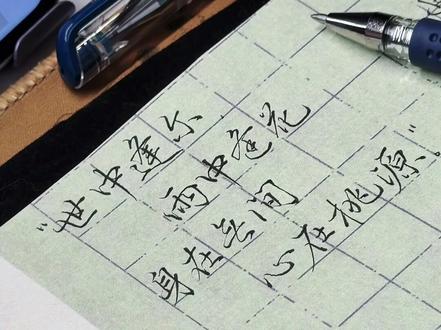 “世中逢尔
雨中逢花
身在无间
心在桃源”